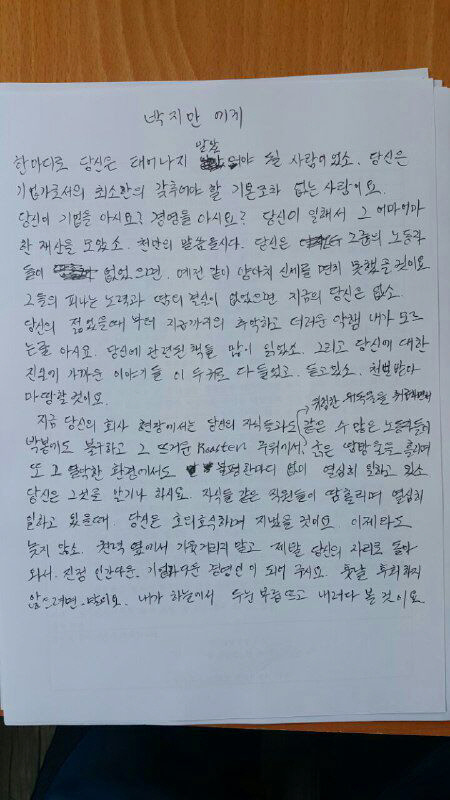 박지만 에게
한마디로 당신은 태어나지 말았어야 될 사람이었소. 당신은
기업가로서의 최소한의 갖추어야 할 기본조차 없는 사람이요.
당신이 기업을 아시요? 경영을 아시요? 당신이 일해서 그 어마어마
한 재산을 모았소. 천만의 말씀올시다. 당신은 그룹의 노동자
들이 없었으면. 예전 같이 양아치 신세를 면치 못했을 것이요
그들의 피나는 노력과 땀의 없었으면 지금의 당신은 없소.
당신의 젊었을때 부터 지금까지의 추악하고 더러운 악행 내가 모르
는줄 아시요. 당신에 관련된 책들 많이 읽었소. 그리고 당신에 대한
진실에 가까운 이야기들 이 두 귀로 다 들었고. 듣고있소. 천벌받아
마땅할것이요.
지금 당신의 회사 현장에서는 당신의 자식들과도 같은 수 많은 노동자들이 위험한 취급하면서
박봉에도 불구하고 그 뜨거운 Roaster 주위에서. 굵은 땀방울을 흘리며
또 그 열악한 환경에서도 불평한마디 없이 열심히 일하고 있소
당신은 그것을 알기나 하시요. 자식들 같은 직원들이 땀흘리며 열심히
일하고 있을때. 당신은 호의호식하며 지냈을 것이요. 이제라도
늦지 않소. 옆에서 말고 제발 당신의 자리로 돌아
와서. 진정 인간다운. 기업가다운 경영인이 되어 주시요. 훗날 후회하지
않으려면. 말이요. 내가 하늘에서 두눈 부릅뜨고 내려다 볼 것이요.